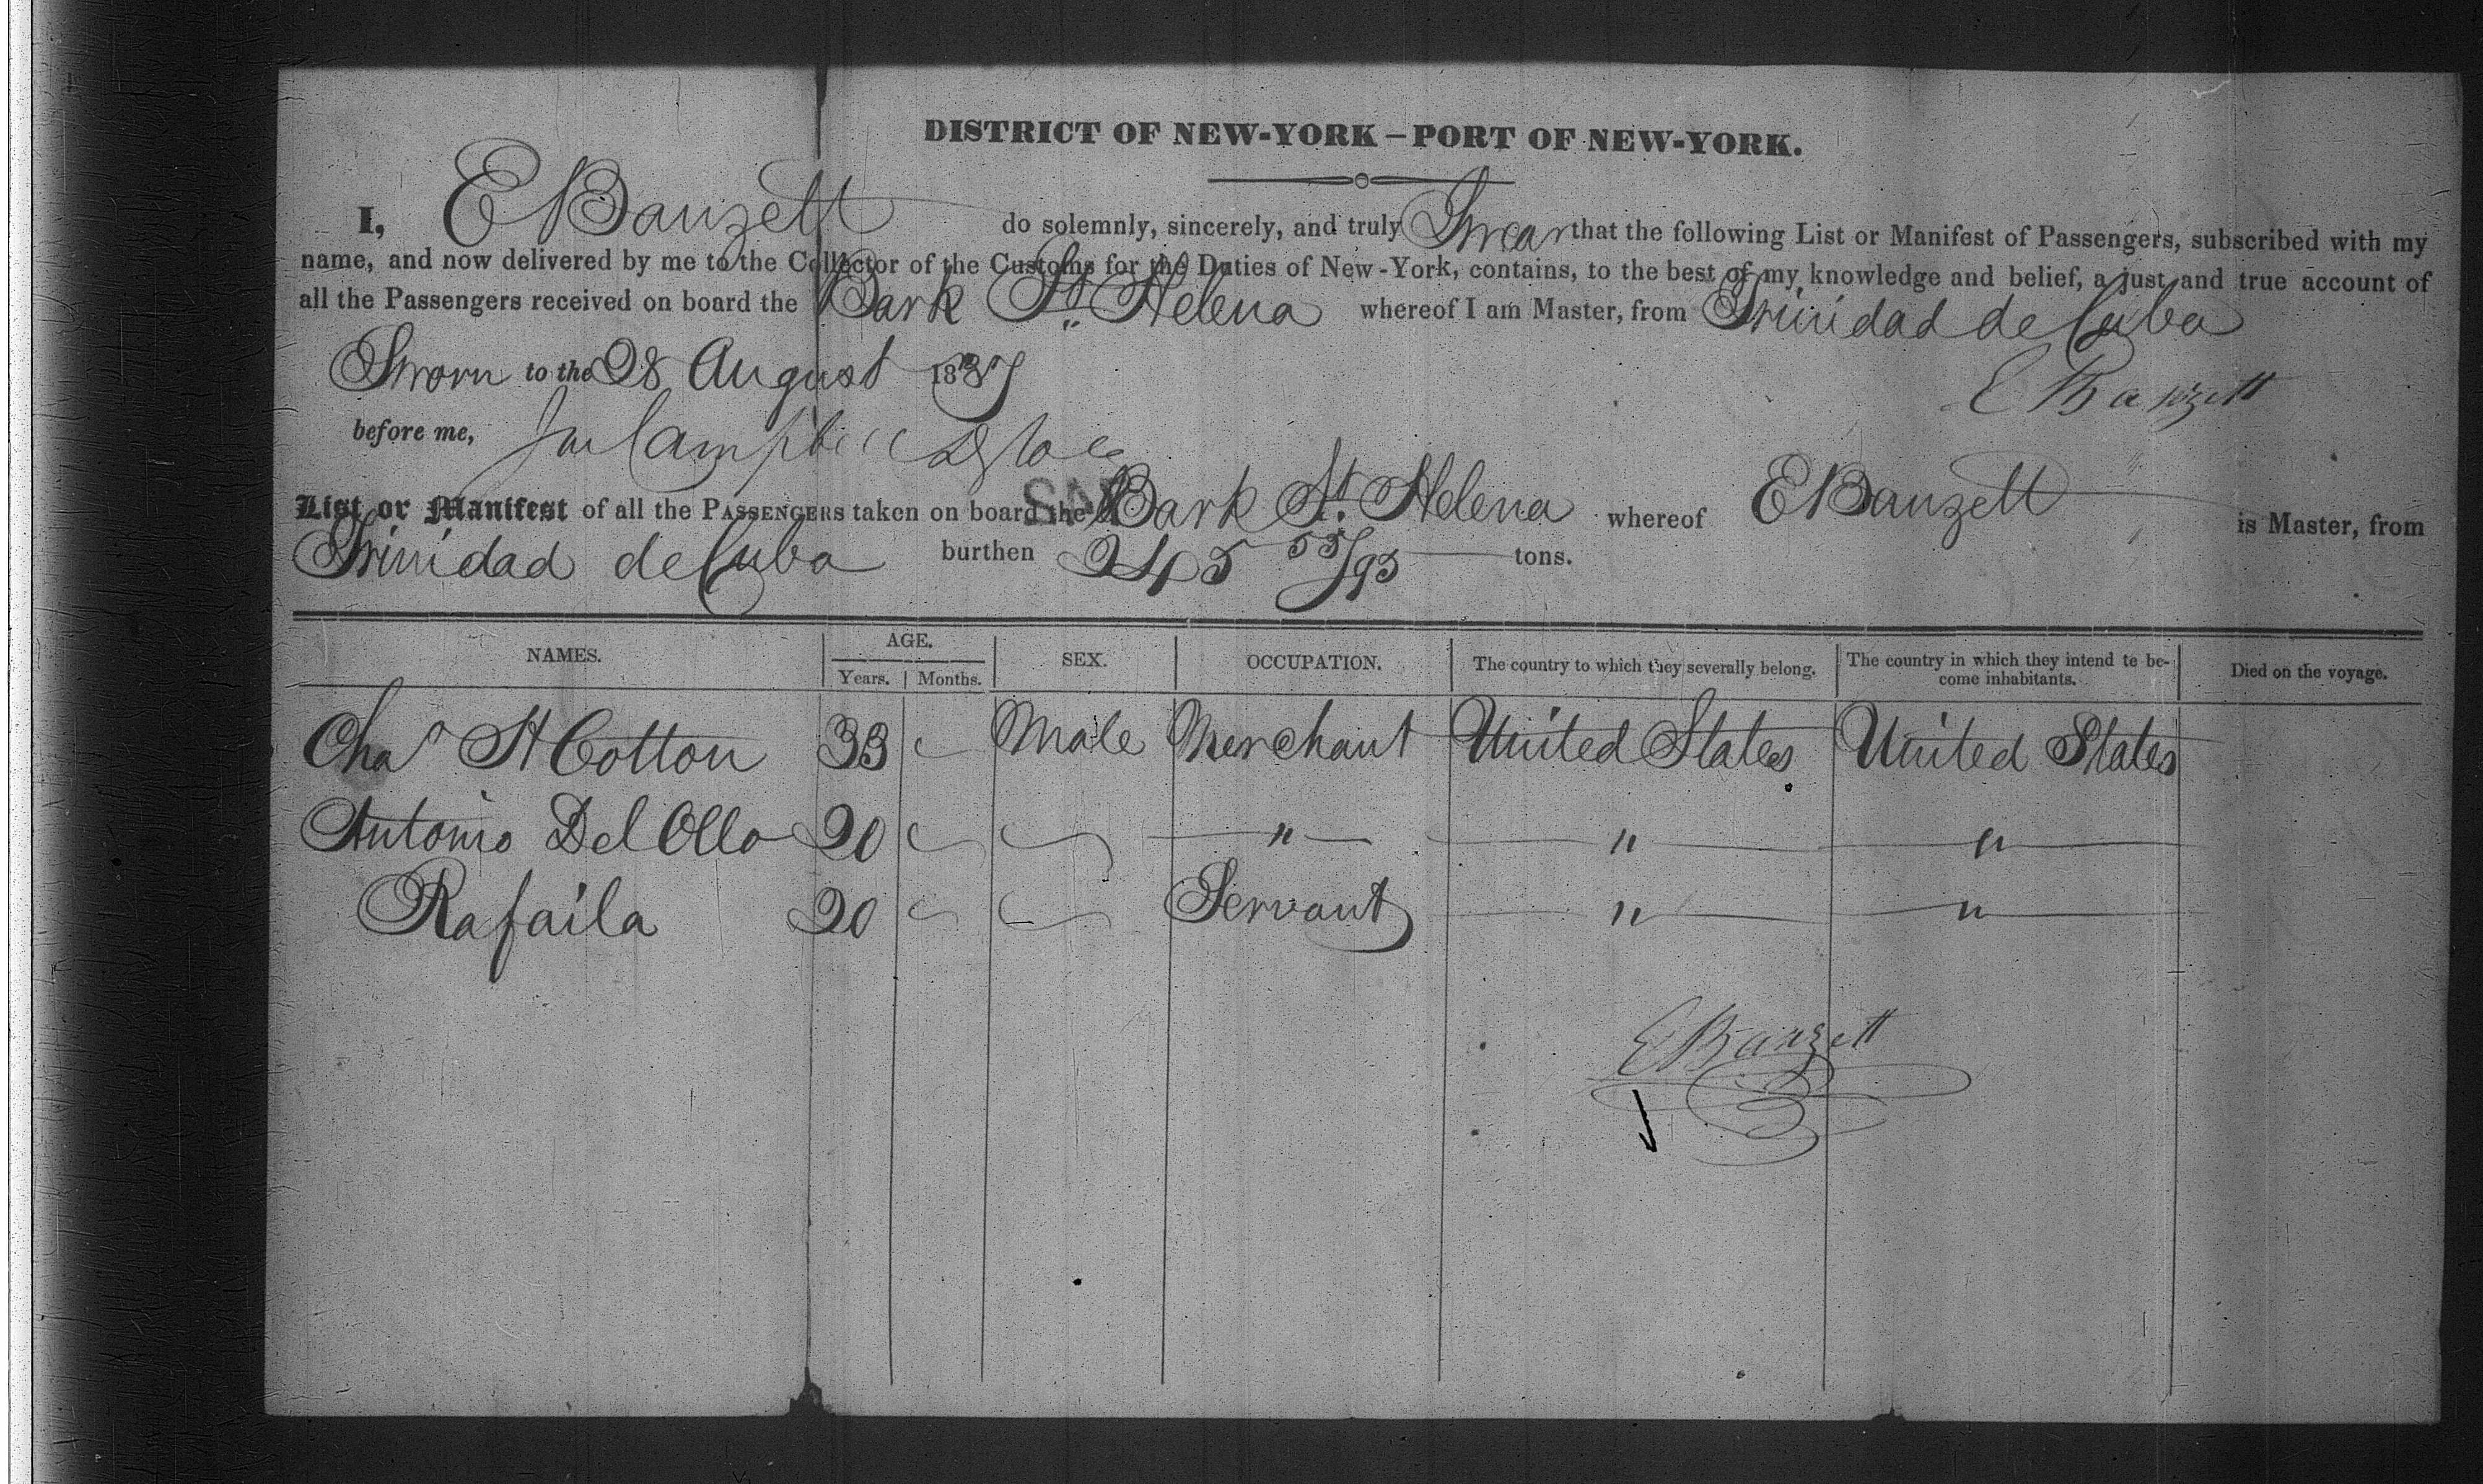 DISTRICT OF NEW-YORK – PORT OF NEW-YORK.
I, E Banzett do solemnly, sincerely, and truly Swear that the following List or Manifest of Passengers, subscribed with my
name, and now delivered by me to the Collector of the Customs for the Duties of New-York, contains, to the best of my knowledge and belief, a just and true account of
all the Passengers received on board the Bark St Helena whereof I am Master, from Trinidad de Cuba
Sworn to the 28 August 1837
E Banzett
before me, Campbell
List or Manifest of all the PASSENGERS taken on board the Bark St. Helena whereof E Banzett is Master, from
Trinidad de Cuba burthen 245 55/95 tons.
NAMES. AGE. SEX. OCCUPATION. The country to which they severally belong. The country in which they intend te be-come inhabitants. Died on the voyage.
Years. Months.
Chas H Cotton 33 Male Merchant United States United States
Antonio Del Ollo 20 " " "
Rafaila 20 Servant " "
E Banzett